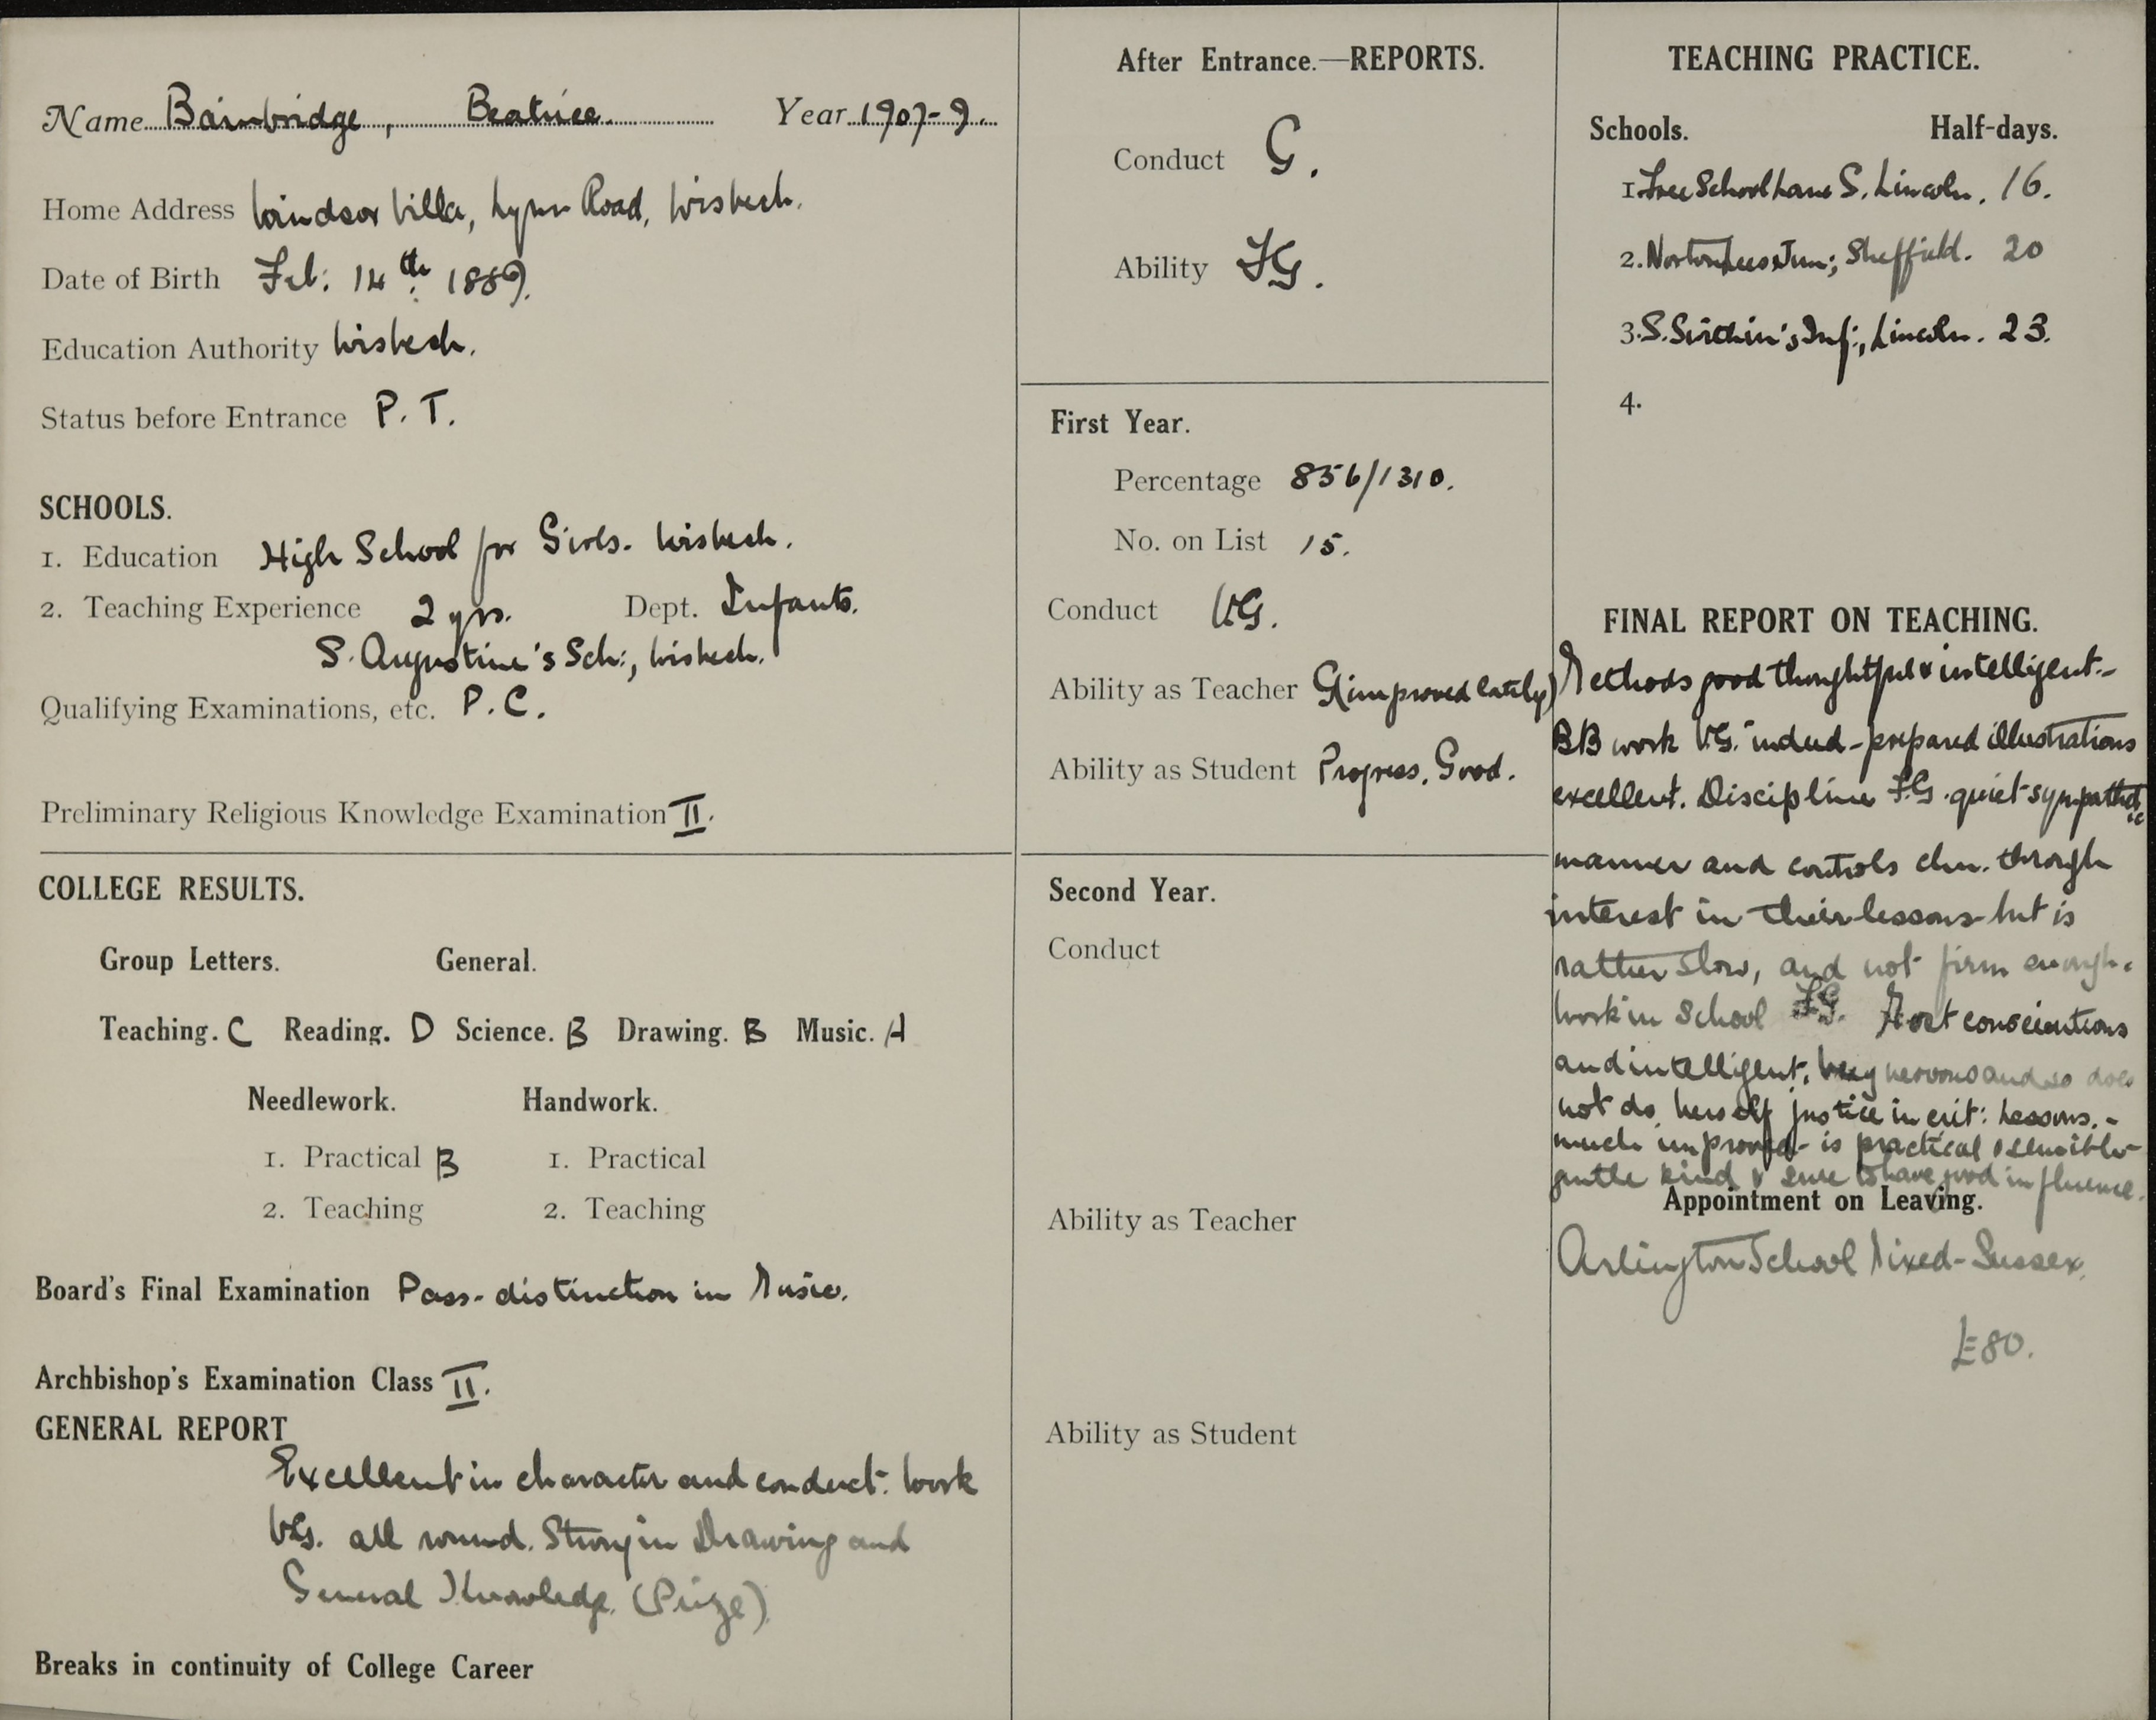 Name Bainbridge, Beatrice. Year 1907-9.
Home Address Windsor Villa, Lynn Road, Wisbech.
Date of Birth Feb: 14th 1889.
Education Authority Wisbech.
Status before Entrance P. T.
SCHOOLS.
1. Education High School for Girls. Wisbech.
2. Teaching Experience 2 yrs. Dept. Infants.
S. Augustine's Sch:, Wisbech.
Qualifying Examinations, etc. P.C.
Preliminary Religious Knowledge Examination II.
COLLEGE RESULTS.
Group Letters. General.
Teaching. C Reading. D Science. B Drawing. B Music. A
Needlework. Handwork.
1. Practical B 1. Practical
2. Teaching 2. Teaching
Board's Final Examination Pass - distinction in Music.
Archbishop's Examination Class II.
GENERAL REPORT
Excellent in character and conduct. Work
V.G. all round. Strong in Drawing and
General Knowledge. (Prize)
Breaks in continuity of College Career
After Entrance.—REPORTS.
Conduct G.
Ability FG.
First Year.
Percentage 856/1310.
No. on List 15.
Conduct VG.
Ability as Teacher G (improved lately)
Ability as Student Progress. Good.
Second Year.
Conduct
Ability as Teacher
Ability as Student
TEACHING PRACTICE.
Schools. Half-days.
1. Free School Lane S. Lincoln. 16.
2. Norton Lees Jun; Sheffield. 20
3. S. Swithin's Inf:, Lincoln. 23.
4.
FINAL REPORT ON TEACHING.
Methods good thoughtful & intelligent -
BB work V.G. indeed - prepared illustrations
excellent. Discipline F.G. quiet sympathetic
manner and controls chn. through
interest in their lessons - but is
rather slow, and not firm enough.
Work in School FG. Most conscientious
and intelligent. Very nervous and so does
not do herself justice in crit: lessons. -
much improved - is practical & sensible -
gentle kind & sure to have good influence.
Appointment on Leaving.
Arlington School Mixed - Sussex.
£80.